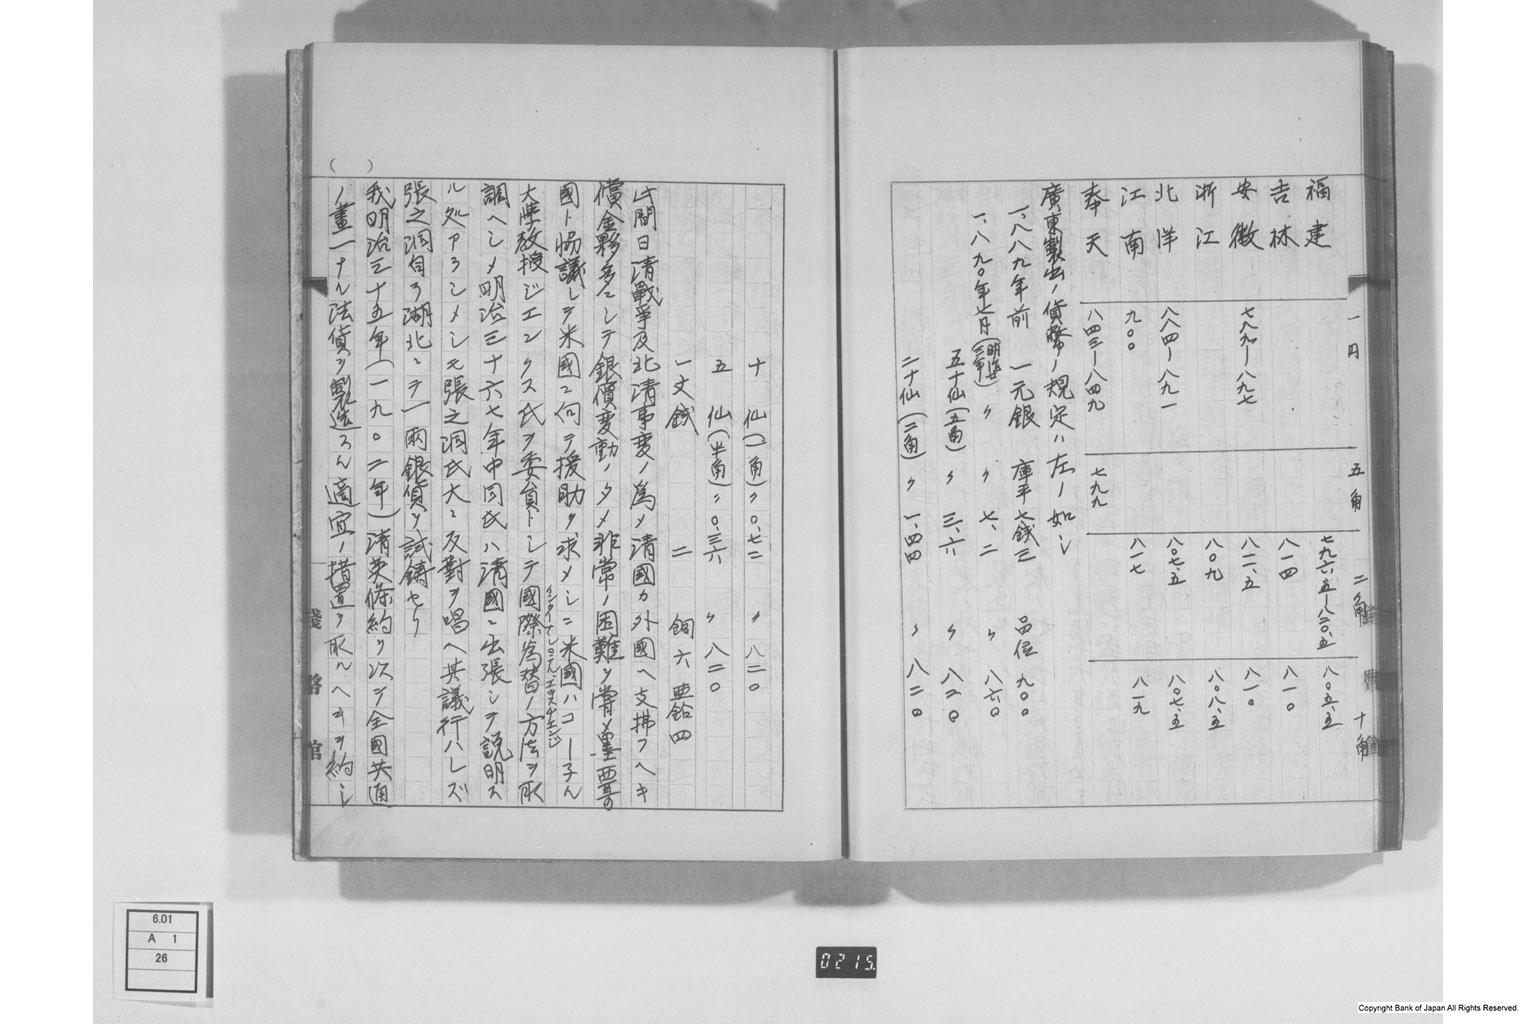 一円 五角 二角 十角
福建 七九六.五-八二〇.五 八〇五.五
吉林 八一四 八一〇
安徽 七九九-八九七 八一一.五 八一〇
浙江 八〇九 八〇八.五
北洋 八八四-八九一 八〇七.五 八〇七.五
江南 九〇〇 八一七 八一九
奉天 八四三-八四九 七九九
廣東製出ノ貨幣ノ規定ハ左ノ如シ
一、八八九年前 一元銀 庫平七銭三 品位 九〇〇
一、八九〇年七月(明治二三年) 〃 〃 七、二 〃 八六〇
五十仙(五角) 〃 三、六 〃 八二〇
二十仙(二角) 〃 一、四四 〃 八二〇
十仙(一角) 〃 〇、七二 〃 八二〇
五仙(半角) 〃 〇、三六 〃 八二〇
一文銭 二 銅六亜鉛四
此間日清戰爭及北清事変ノ為メ清國カ外國ヘ支拂フヘキ
償金夥多ニシテ銀價変動ノタメ非常ノ困難ヲ嘗メ墨西哥
國ト協議シテ米國ニ向テ援助ヲ求メシニ米國ハコー子ル
大學教授ジエンクス氏ヲ委員トシテ國際為替ノ方法ヲ取
調ヘシメ明治三十六七年中同氏ハ清國ニ出張シテ説明ス
ル処アラシメシモ張之洞氏大ニ反對ヲ唱ヘ其議行ハレズ
張之洞自ラ湖北ニテ一兩銀貨ヲ試鋳セリ
我明治三十五年(一九〇二年)清英條約ヲ以テ全國共通
ノ畫一ナル法貨ヲ製造スル適宜ノ措置ヲ取ルヘキヲ約シ
( )
6.01
A 1
26
0215
Copyright Bank of Japan All Rights Reserved.